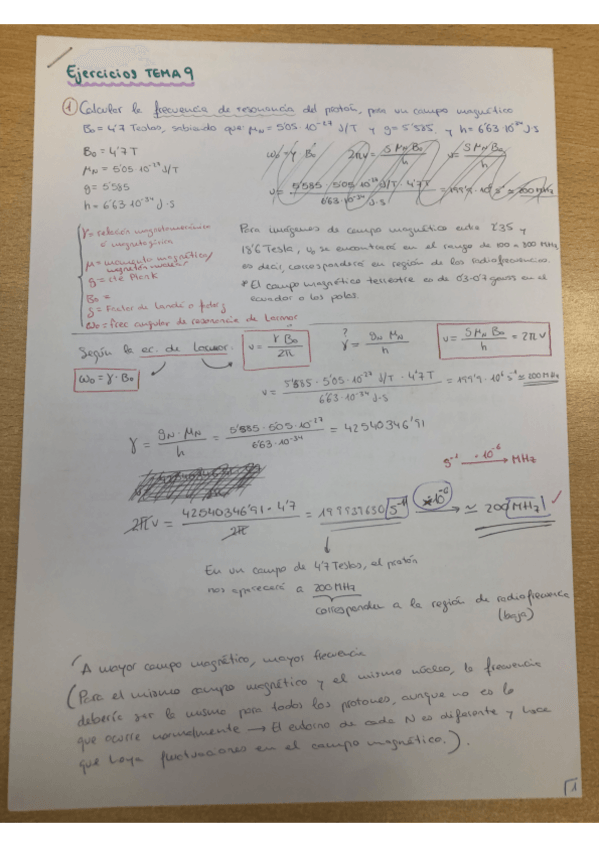 Ejercicios TEMA 9
① Calcular la frecuencia de resonancia del protón, para un campo magnético
B₀ = 4'7 Teslas, sabiendo que: μN = 5'05·10⁻²⁷ J/T y g = 5'585, y h = 6'63·10⁻³⁴ J·s
B₀ = 4'7 T
μN = 5'05·10⁻²⁷ J/T
g = 5'585
h = 6'63·10⁻³⁴ J·s
ω₀ = γ B₀ 2πν = g μN B₀ / h ν = g μN B₀ / h
ν = 5'585 · 5'05·10⁻²⁷ J/T · 4'7 T / 6'63·10⁻³⁴ J·s = 199'9·10⁶ s⁻¹ ≃ 200 MHz
γ = relación magnetogírica
o magnetogírica
μ = magnetón nuclear
h = cte Plank
B₀ =
g = Factor de Landé o factor g
ω₀ = frec angular de resonancia de Larmor
Para imágenes de campo magnético entre 2'35 y
18'6 Tesla, ν₀ se encontrará en el rango de 100 a 800 MHz
es decir, corresponderá en región de las radiofrecuencias.
* El campo magnético terrestre es de 0'3-0'7 gauss en el
ecuador o los polos.
Según la ec. de Larmor.
ν = γ B₀ / 2π
?
γ = gN μN / h
ν = g μN B₀ / h = 2πν
ω₀ = γ · B₀
ν = 5'585 · 5'05·10⁻²⁷ J/T · 4'7 T / 6'63·10⁻³⁴ J·s = 199'9·10⁶ s⁻¹ ≃ 200 MHz
γ = gN · μN / h = 5'585 · 5'05·10⁻²⁷ / 6'63·10⁻³⁴ = 42540346'91
s⁻¹ ·10⁻⁶ → MHz
2πν = 42540346'91 · 4'7 / 2π = 199939630 s⁻¹ ·10⁻⁶ → ≃ 200 MHz ✓
En un campo de 4'7 Teslas, el protón
nos aparecerá a 200 MHz
corresponden a la región de radiofrecuencia
(baja)
A mayor campo magnético, mayor frecuencia
(Para el mismo campo magnético y el mismo núcleo, la frecuencia
debería ser la misma para todos los protones, aunque no es lo
que ocurre normalmente → El entorno de cada N es diferente y hace
que haya fluctuaciones en el campo magnético.).
1